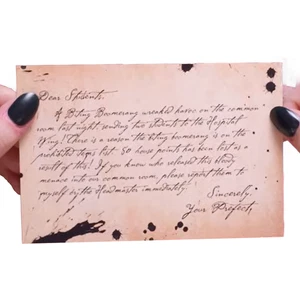 Dear Students,
A Biting Boomerang wreaked havoc on the common
room last night, sending two students to the Hospital
Wing! There is a reason the biting boomerang is on the
prohibited items list. 50 house points has been lost as a
result of this! If you know who released this bloody
menace into our common room, please report them to
myself or the Headmaster immediately.
Sincerely,
Your Prefects